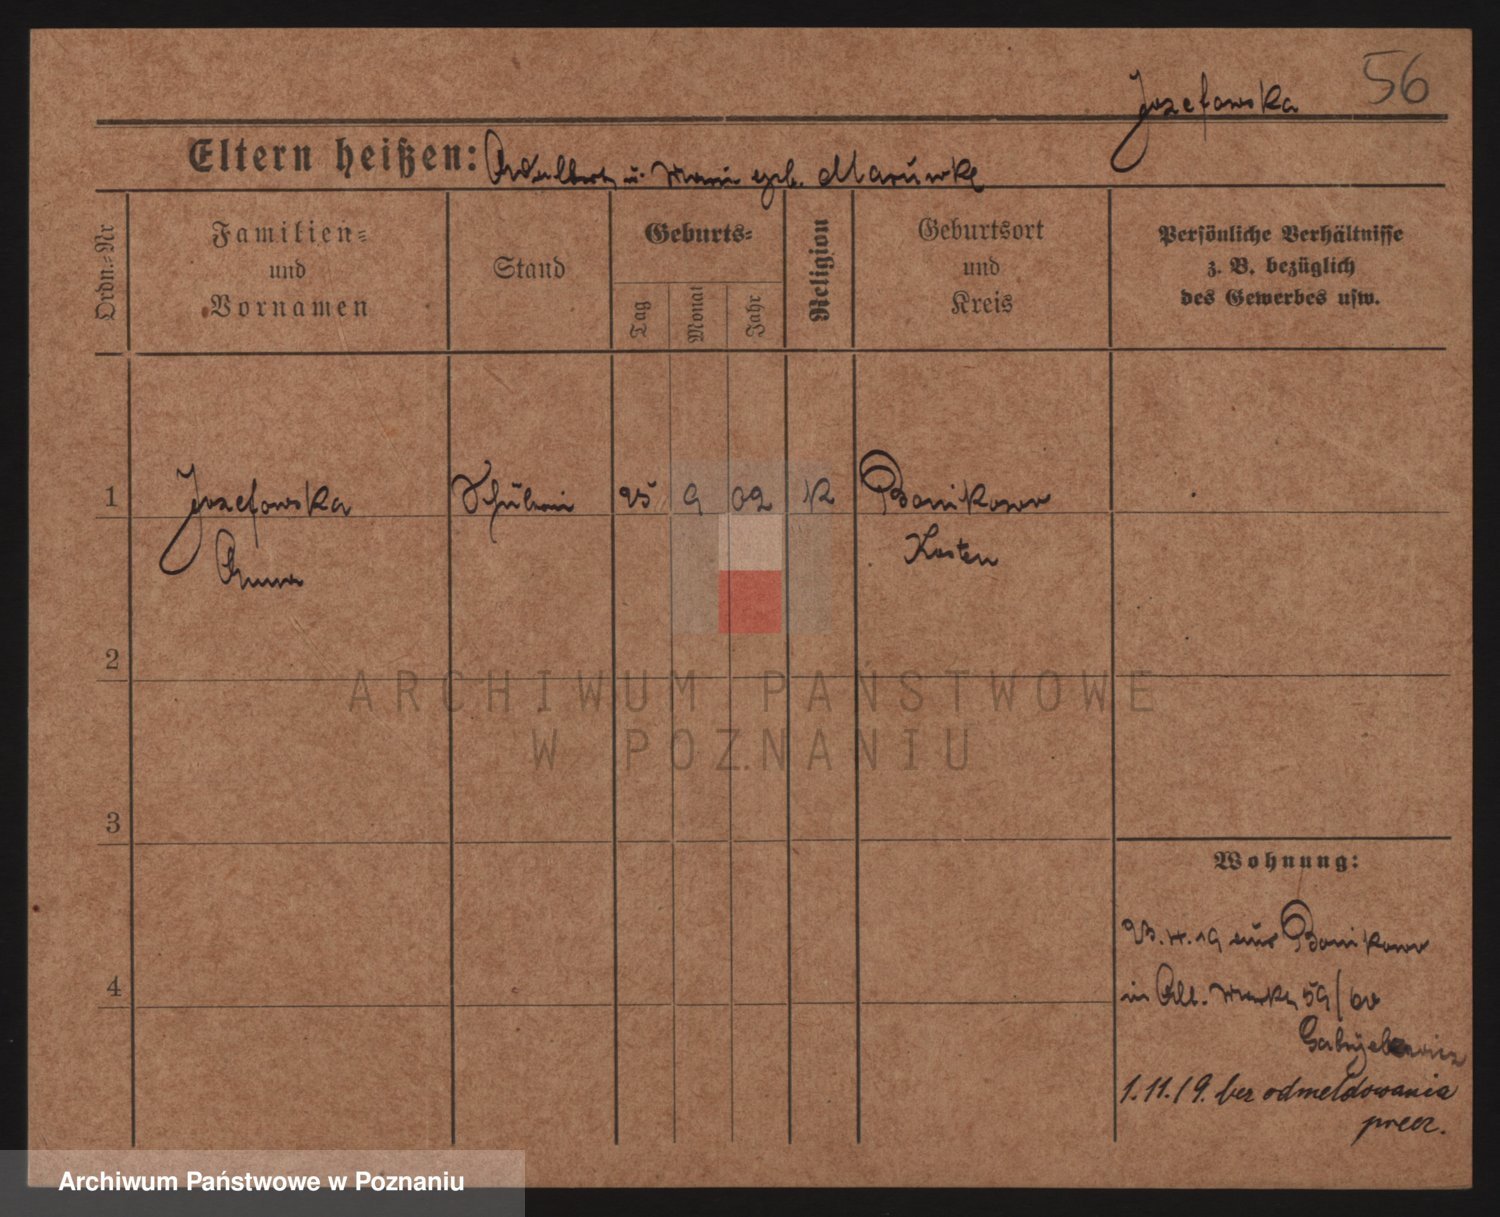 56
Jozefowska
Eltern heißen: Adalbert u. Marie geb.
Ordn.-Nr
Familien-
und
Vornamen
Stand
Geburts-
Tag
Monat
Jahr
Religion
Geburtsort
und
Kreis
Persönliche Verhältnisse
z. B. bezüglich
des Gewerbes usw.
1 Jozefowska Schülerin 25 9 02 K Bonikowo
Anna Kosten
2
ARCHIWUM PAŃSTWOWE
W POZNANIU
3
Wohnung:
23.4.19 aus Bonikowo
in Alt. Markt 59/60
4
1.11.19. bez odmeldowania
precz.
Archiwum Państwowe w Poznaniu